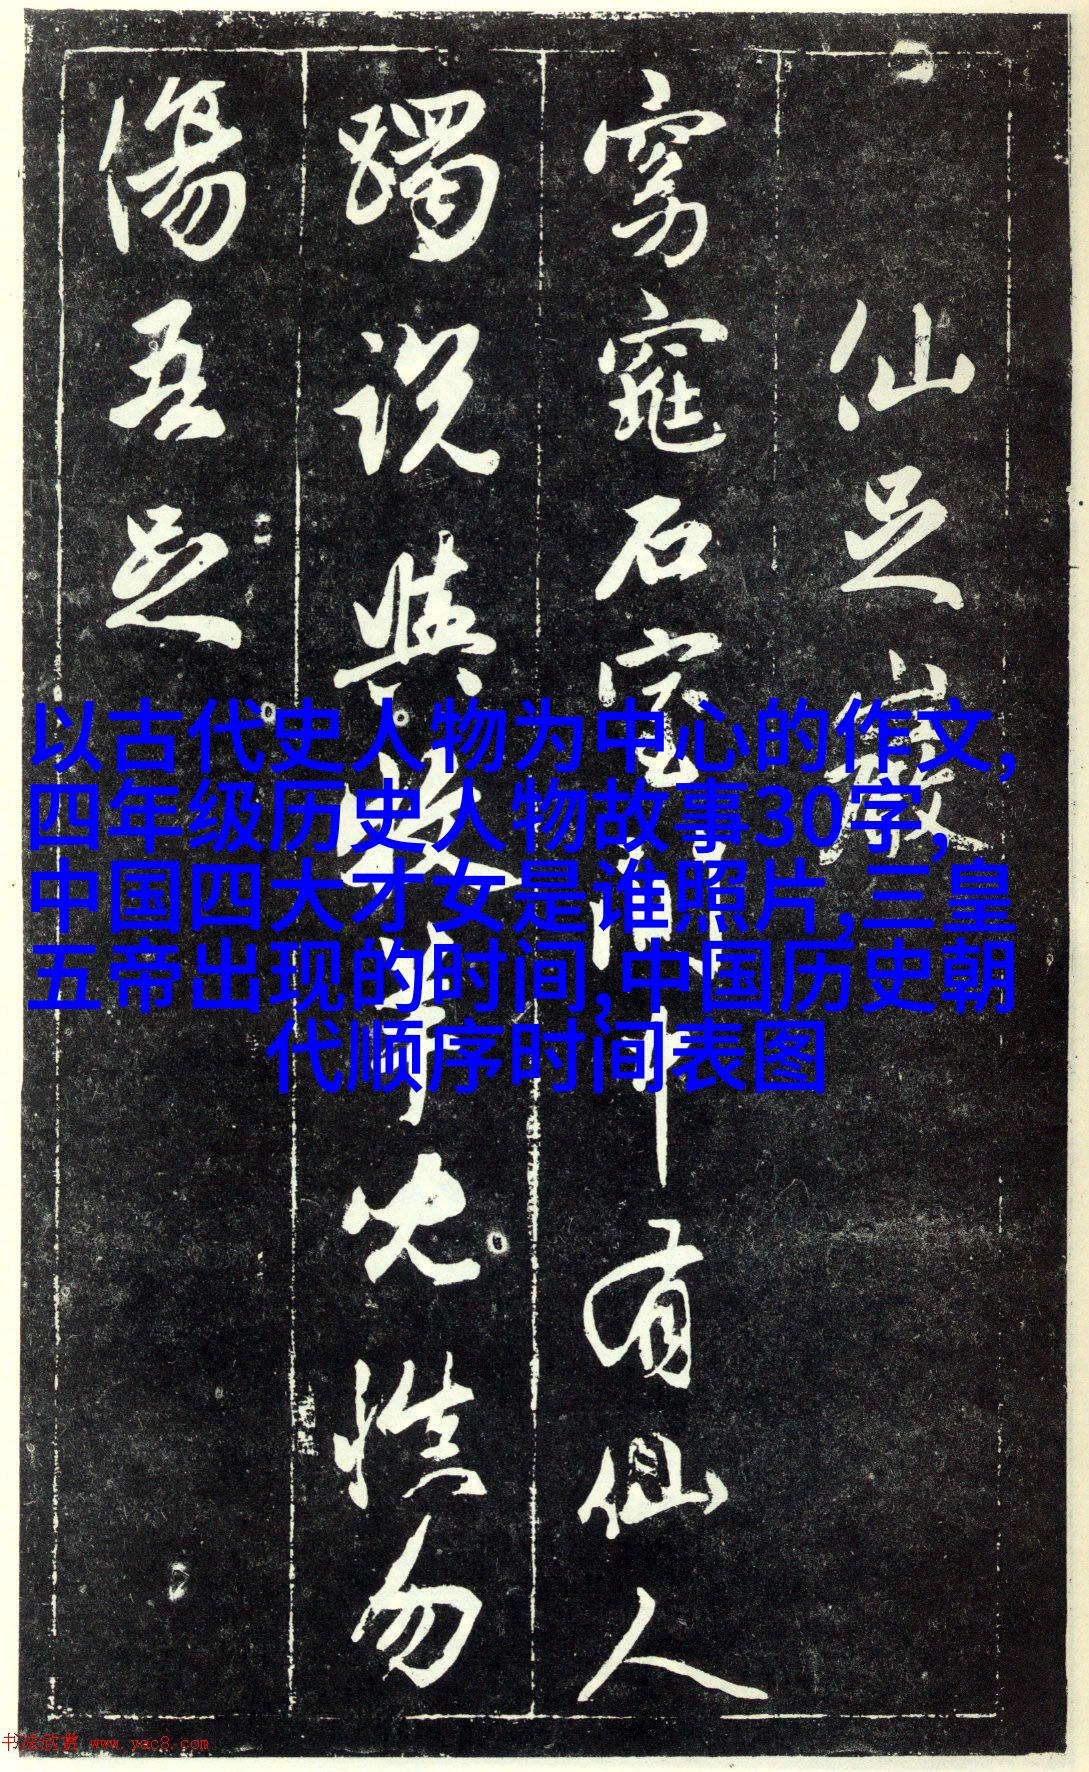 仙足巖
窈窕石室間中有仙人
躅說與牧羊兒慎勿
傷吾足
以古代史人物为中心的作文,
四年级历史人物故事30字,
中国四大才女是谁照片,三皇
五帝出现的时间,中国历史朝
代顺序时间表图
书法欣赏 www.yac8.com